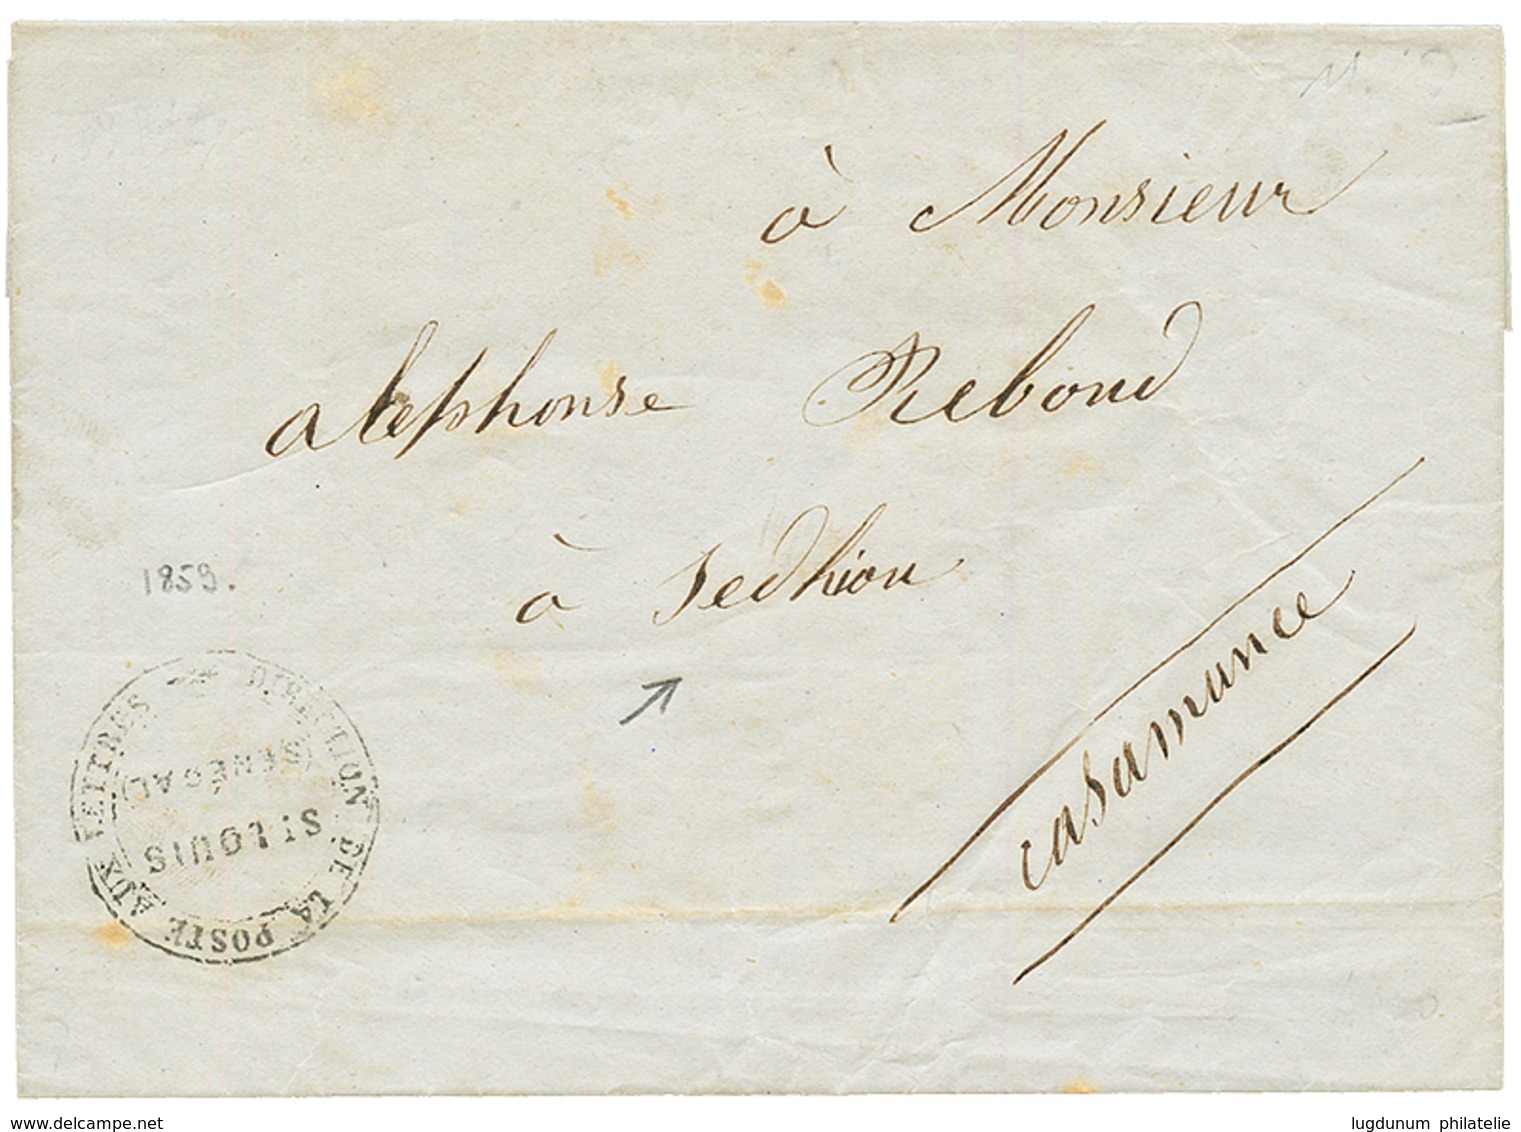 à Monsieur
alephonse Rebond
à Sedhiou
1859.
casamance
DIRECTION DE LA POSTE AUX LETTRES
St LOUIS
(SENEGAL)
www.delcampe.net
lugdunum philatelie